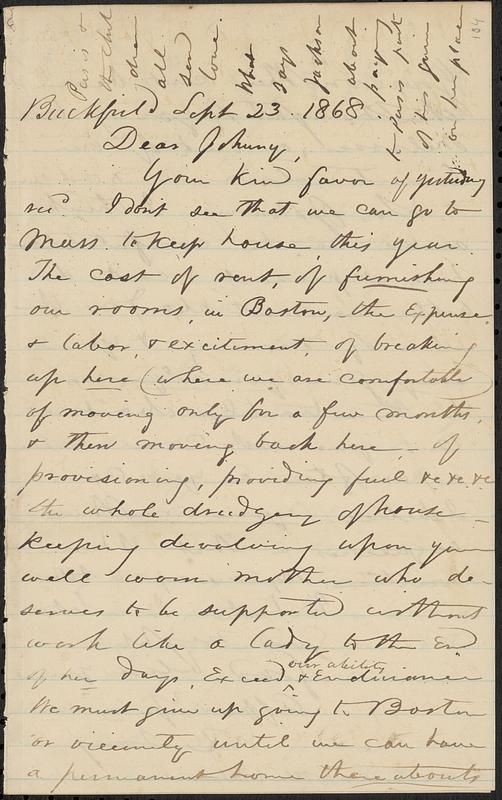 Buckfield Sept 23. 1868
Dear Johnny,
Your kind favor of yesterday
recd I dont see that we can go to
Mass. to keep house, this year.
The cost of rent, of furnishing
our rooms, in Boston, - the expense
& labor, & excitement, of breaking
up here (where we are comfortable)
of moving only for a few months,
& then moving back here, - of
provisioning, providing fuel &c &c &c
the whole drudgery of house-
keeping devolving upon your
well worn mother who de-
serves to be supported without
work like a lady to the end
of her days, exceed our ability & endurance
We must give up going to Boston
or vicinity until we can have
a permanent home thereabouts
Persis &
the child
all
send
love.
What
says
Jackson
about
paying
to Persis part
of his gun
on her place
184